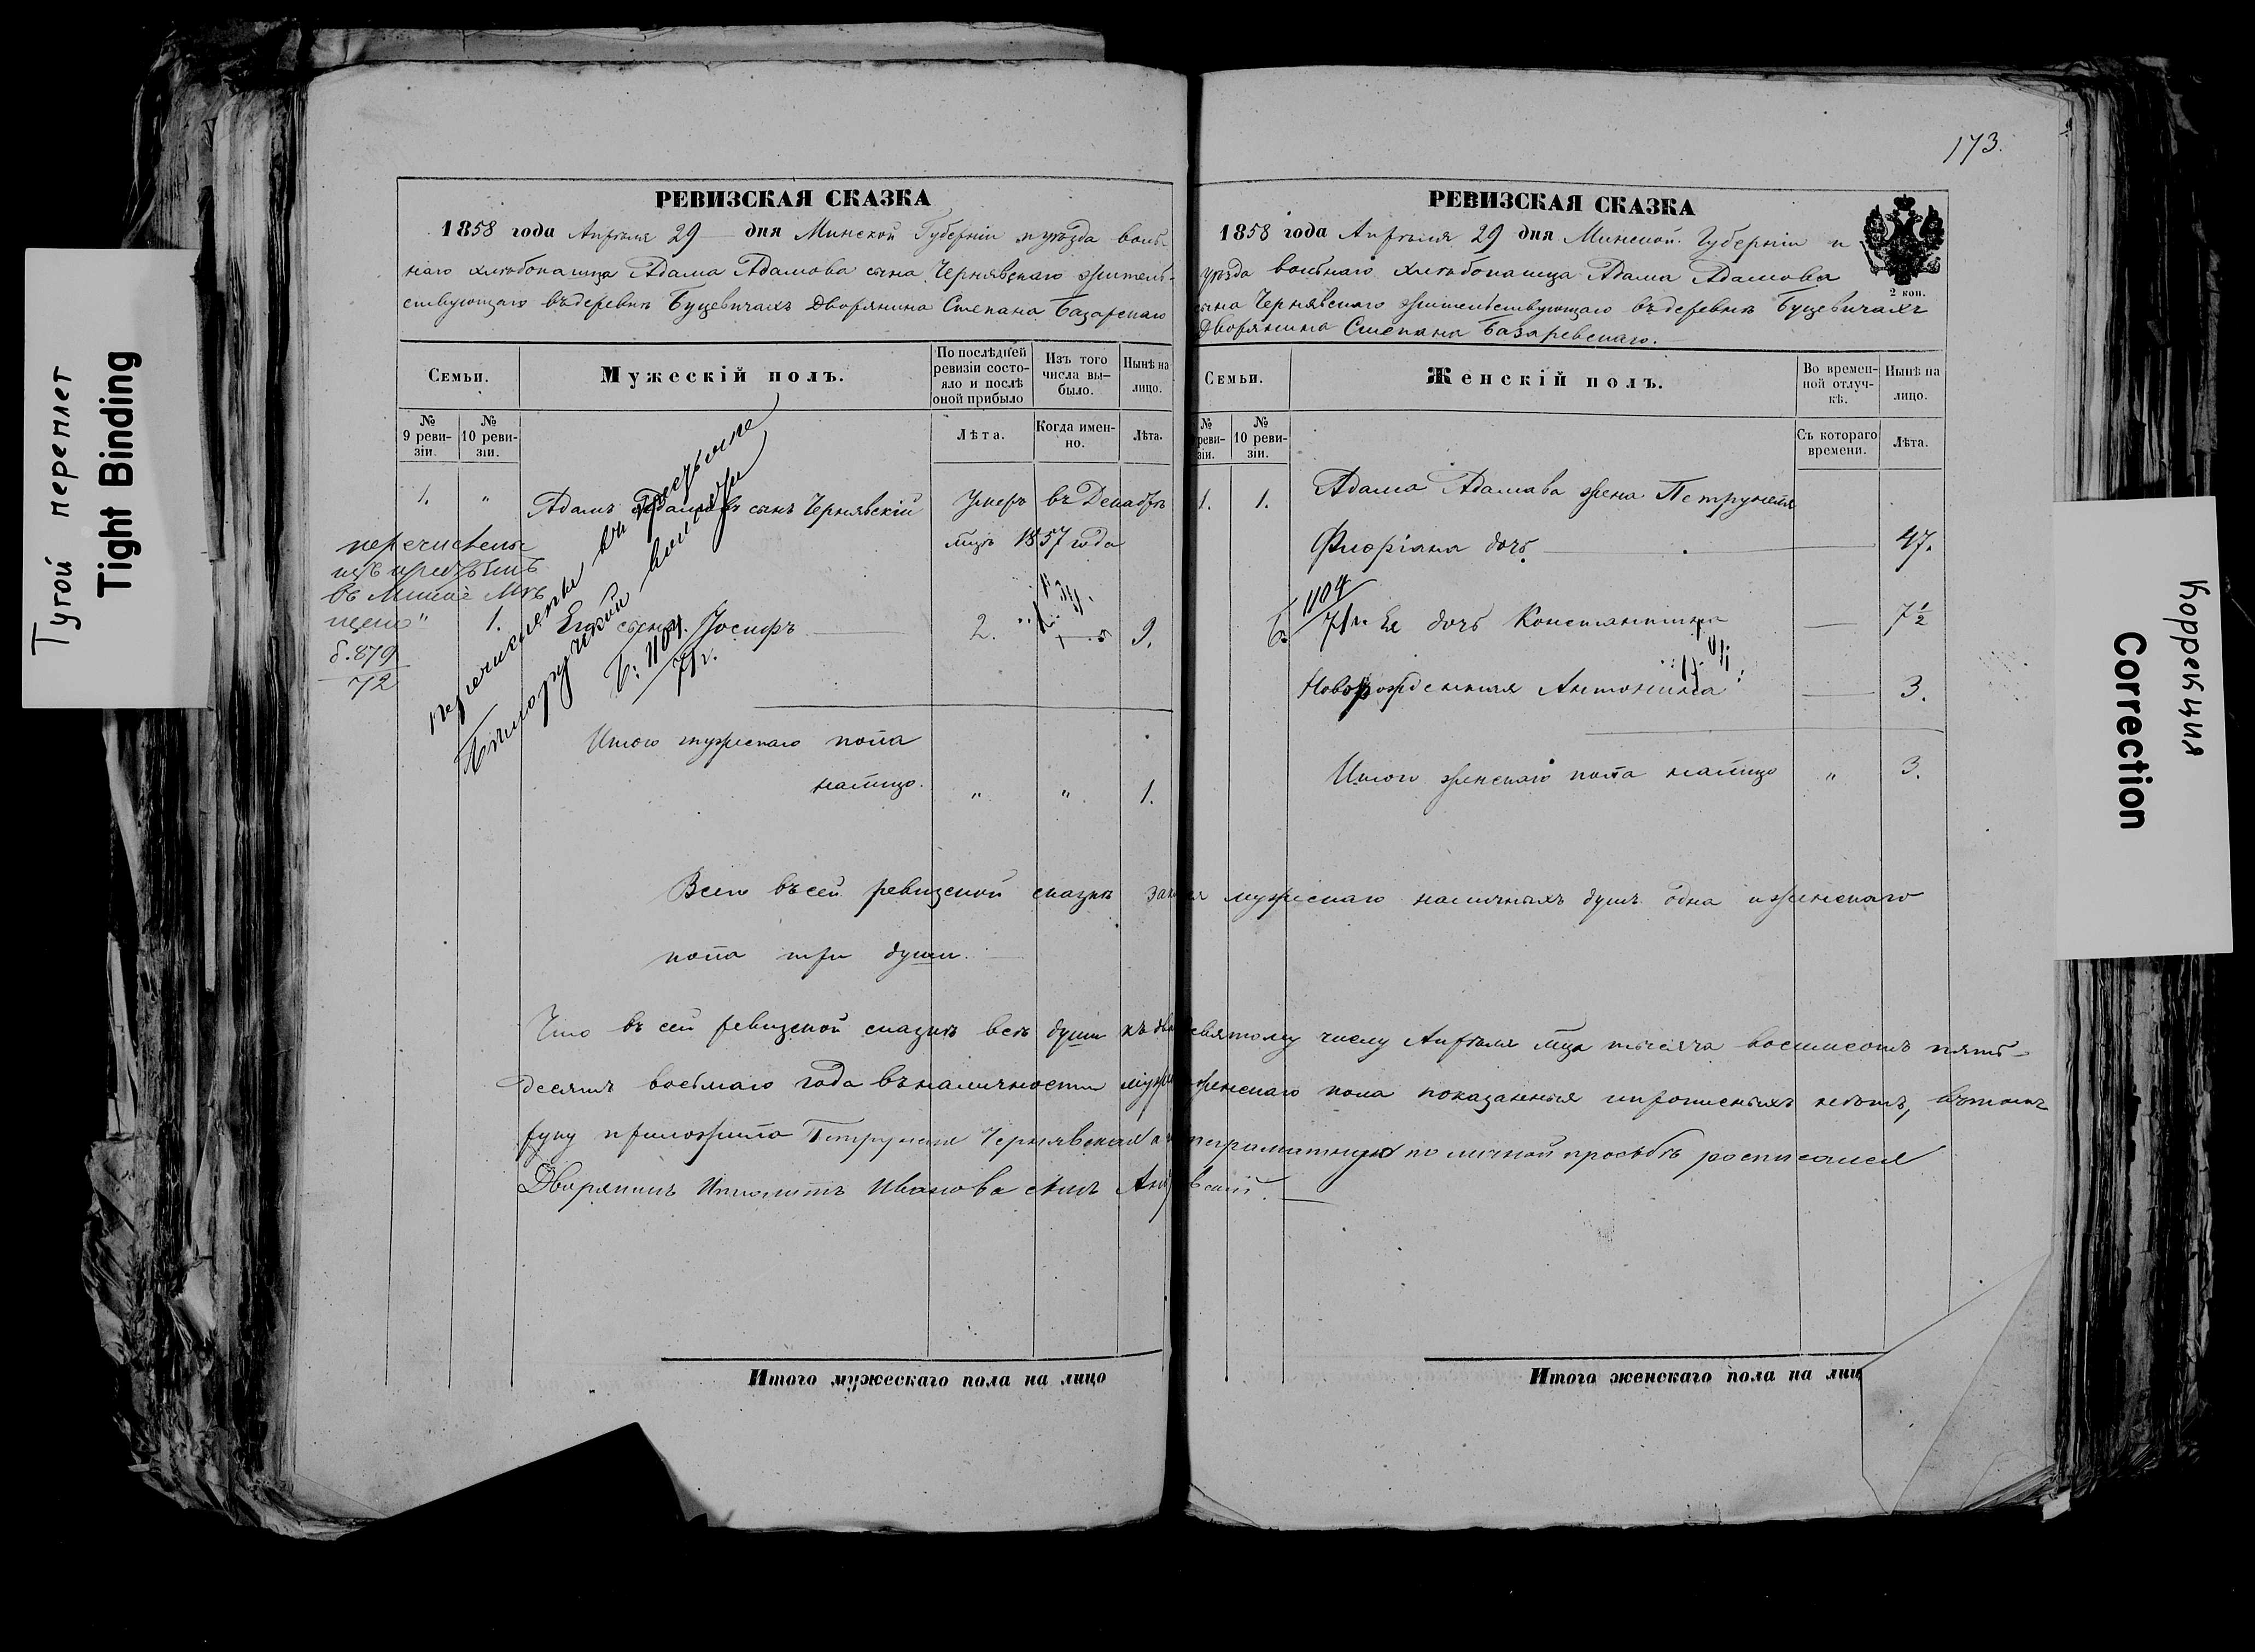 Тугой переплет
Tight Binding
173.
РЕВИЗСКАЯ СКАЗКА
1858 года Апрѣля 29 дня Минской Губерніи и уѣзда воль-
наго хлѣбопашца Адама Адамова сына Чернявскаго житель-
ствующаго въ деревнѣ Буцевичахъ Дворянина Степана Базарскаго
Семьи.
Мужескій полъ.
По послѣдней ревизіи состояло и послѣ оной прибыло
Изъ того числа выбыло.
Нынѣ на лицо.
№ 9 ревизіи.
№ 10 ревизіи.
Лѣта.
Когда именно.
Лѣта.
1. " Адамъ Адамовъ сынъ Чернявскій Умеръ въ Декабрѣ
мцѣ 1857 года
" 1. Его сынъ Іосифъ 2. 9.
перечислены
въ Минскѣ
б. 879
72
перечислены въ
Б: 1104
71 г.
Итого мужескаго пола
налицо. " " 1.
РЕВИЗСКАЯ СКАЗКА
1858 года Апрѣля 29 дня Минской Губерніи и
уѣзда вольнаго хлѣбопашца Адама Адамова
сына Чернявскаго жительствующаго въ деревнѣ Буцевичахъ
Дворянина Степана Базаревскаго.
2 коп.
Семьи.
Женскій полъ.
Во временной отлучкѣ.
Нынѣ на лицо.
ревизіи.
№ 10 ревизіи.
Съ котораго времени.
Лѣта.
1. 1. Адама Адамова жена Петрунеля
дочь 47.
Б. 1104
71 г. Ея дочь Константина 7½
Новорожденная Антонина 3.
Итого женскаго пола налицо " 3.
Всего въ сей ревизской сказкѣ мужескаго наличныхъ душъ одна и женскаго
пола три души.
Что въ сей ревизской сказкѣ всѣ души къ числу Апрѣля мца тысяча восемсотъ пять-
десятъ восьмаго года въ наличности женскаго пола показанныя и прописныхъ нетъ, въ томъ
руку приложила Петрунеля Чернявская а неграматную по личной прозьбѣ росписался
Дворянинъ Ипполитъ Иванова сынъ
Итого мужескаго пола на лицо
Итого женскаго пола на лиц
Коррекция
Correction